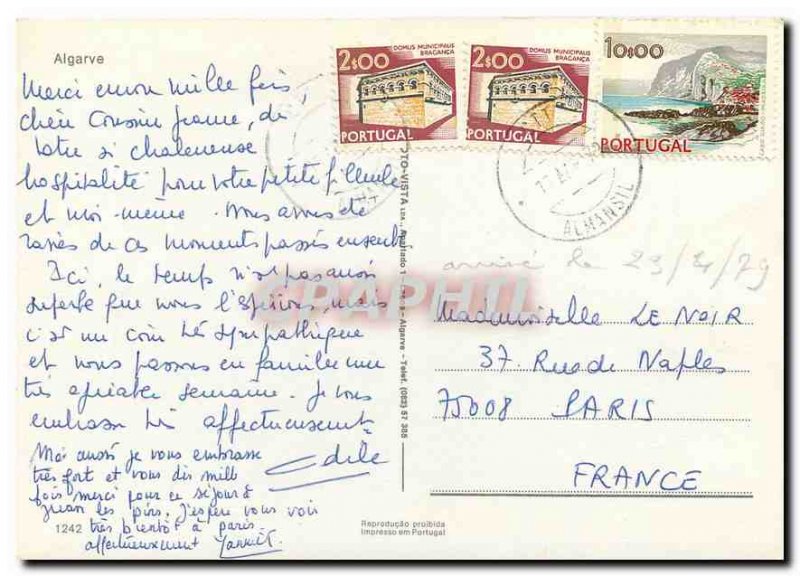 Algarve
Merci encore mille fois,
chère Cousine Jeanne, de
votre si chaleureuse
hospitalité pour votre petite filleule
et moi-même. Nous avons été
ravies de ces moments passés ensemble
Ici, le temps n'est pas aussi
superbe que nous l'espérions, mais
c'est un coin très sympathique
et nous passons en famille une
très agréable semaine. Je vous
embrasse très affectueusement
Odile
Moi aussi je vous embrasse
très fort et vous dis mille
fois merci pour ce séjour à
les pins. J'espère vous voir
très bientôt à paris.
affectueusement
1242
2$00
DOMUS MUNICIPALIS
BRAGANÇA
PORTUGAL
2$00
DOMUS MUNICIPALIS
BRAGANÇA
PORTUGAL
10$00
PORTUGAL
ALMANSIL
arrivé le 23/4/79
CRAPHTI
Mademoiselle LE NOIR
37 Rue de Naples
75008 PARIS
FRANCE
Reprodução proibida
Impresso em Portugal